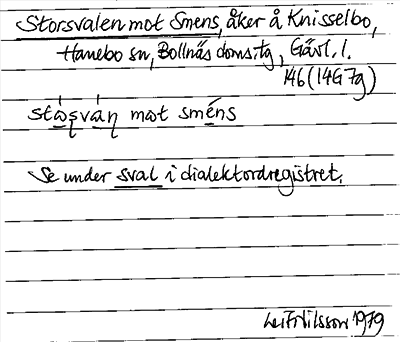 Storsvalen mot Smens, åker å Knisselbo,
Hanebo sn, Bollnäs doms:tg, Gävl. l.
146 (14G 7g)
mot sméns
Se under sval i dialektordregistret.
Leif Nilsson 1979